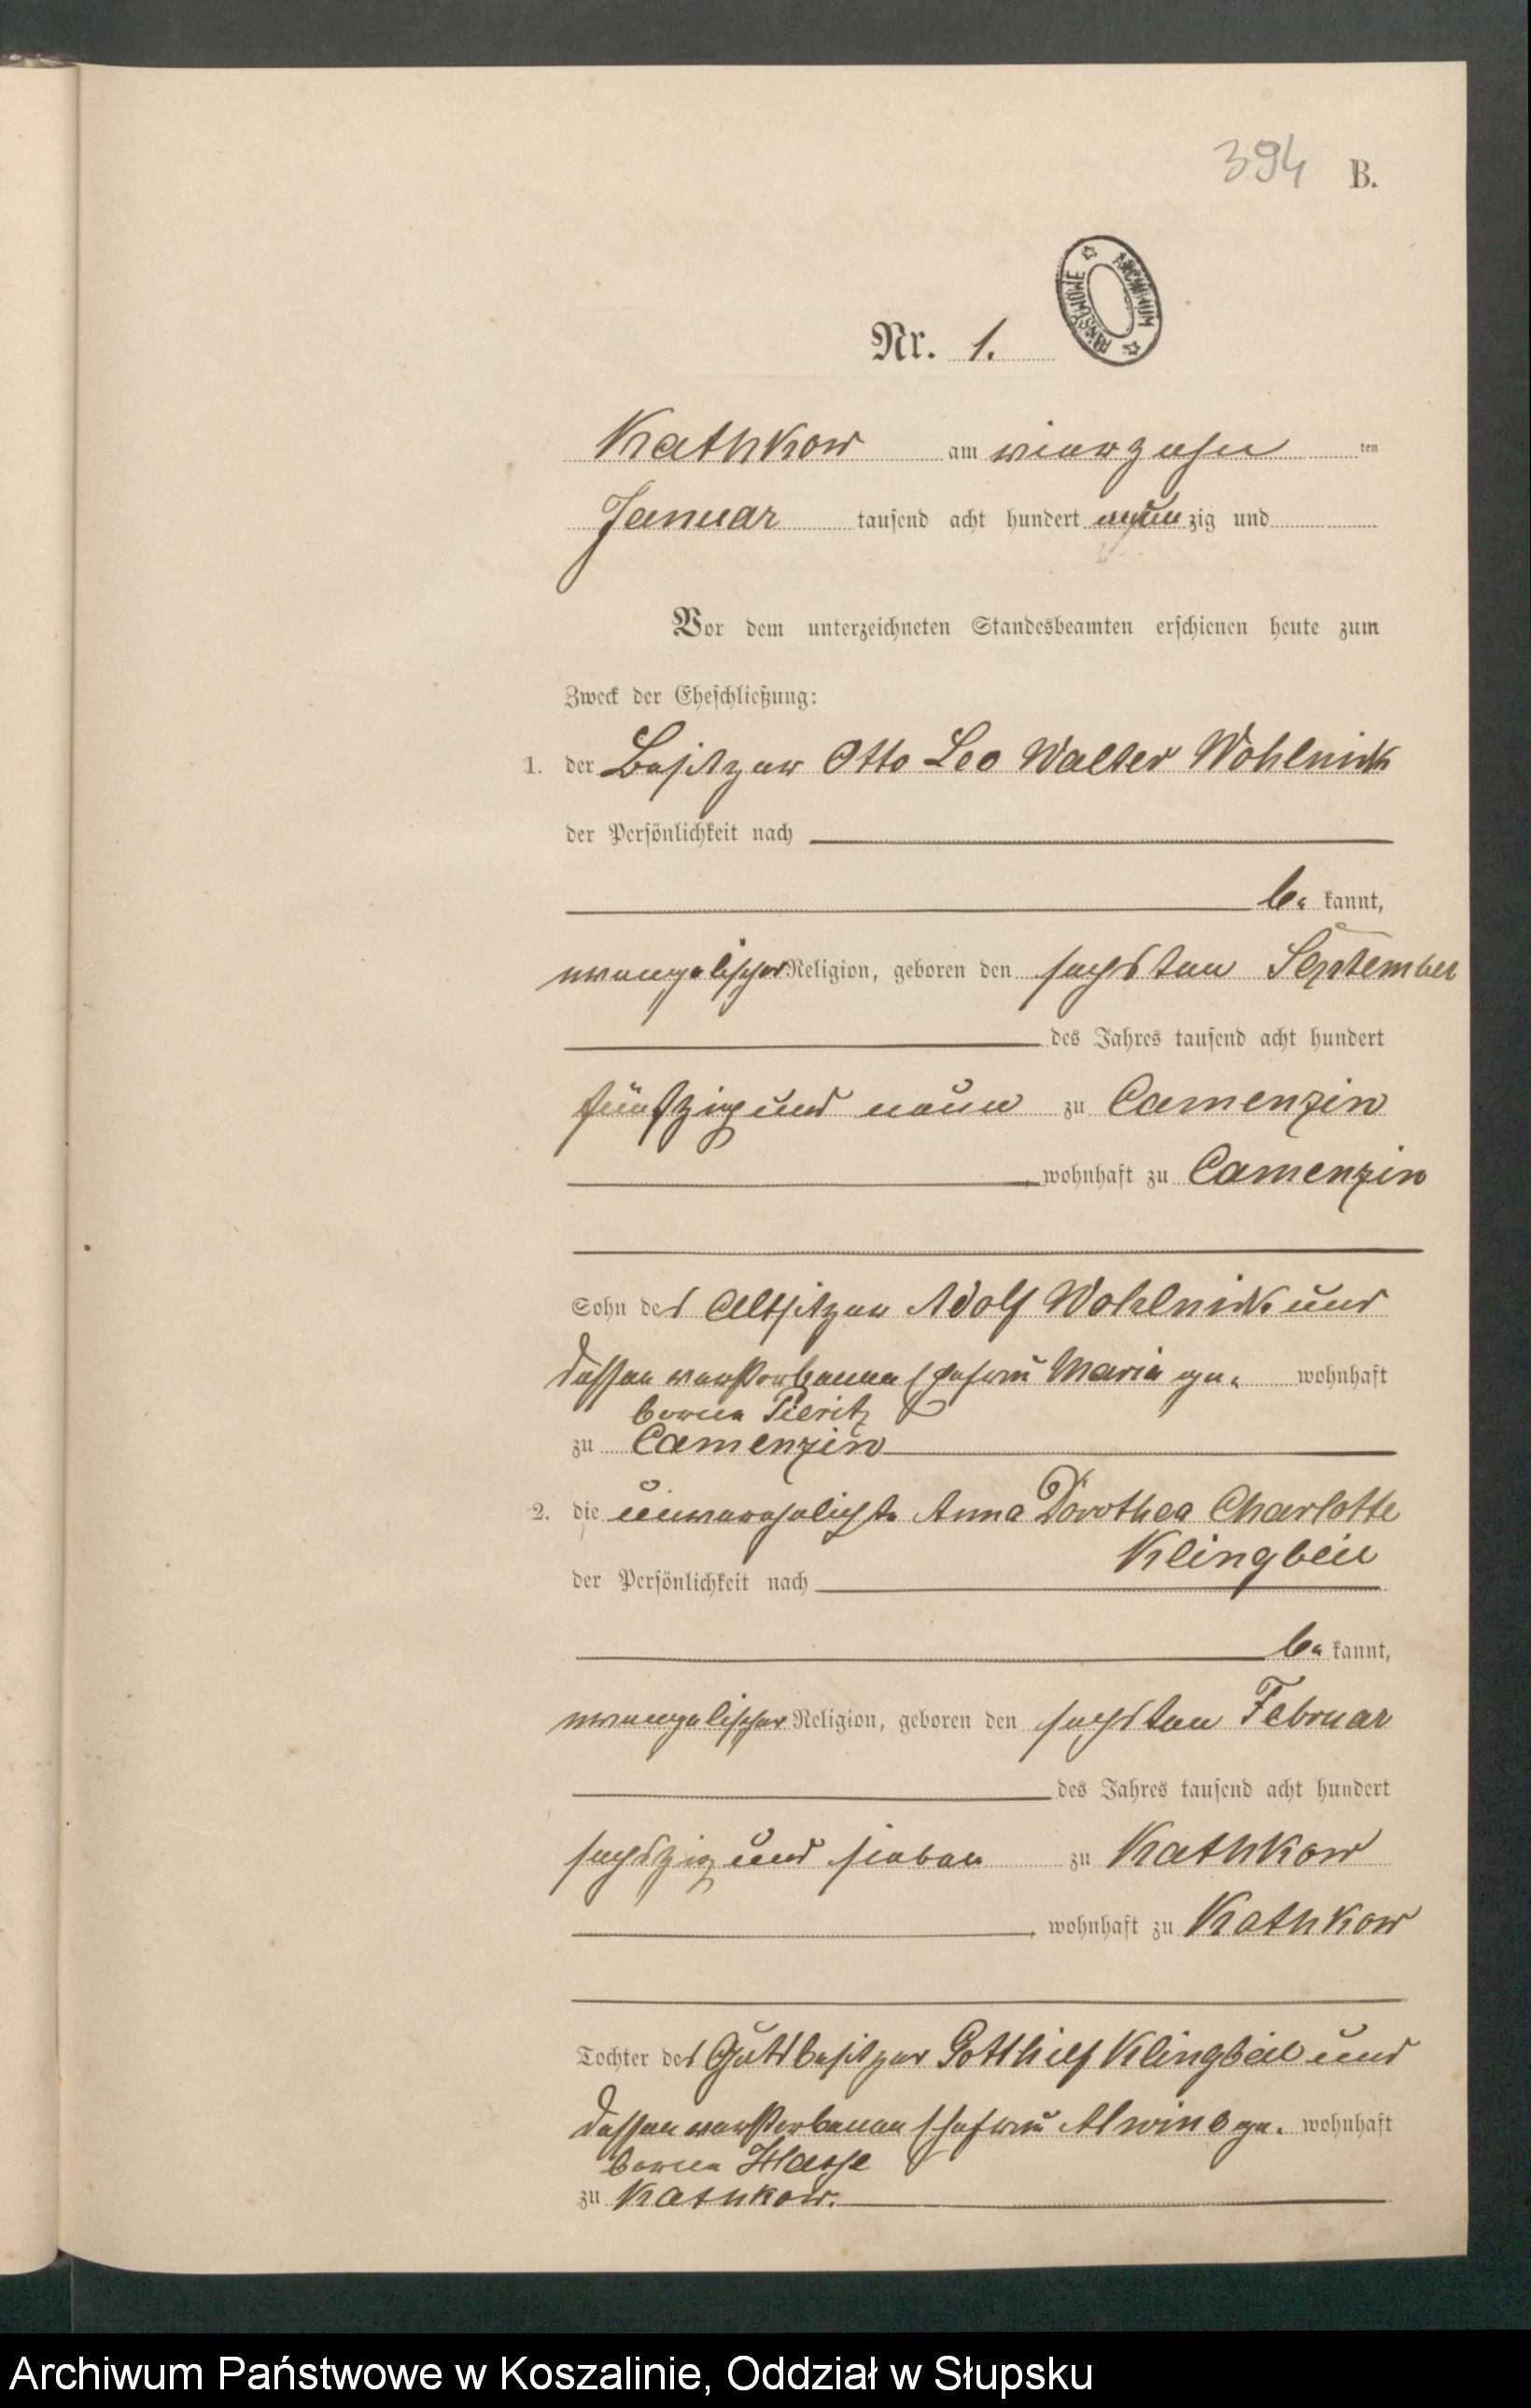 394 B.
ARCHIWUM PAŃSTWOWE
Nr. 1.
Kathkow am vierzehn ten
Januar tausend acht hundert neunzig und
Vor dem unterzeichneten Standesbeamten erschienen heute zum
Zweck der Eheschließung:
1. der Besitzer Otto Leo Walter Wohlnick
der Persönlichkeit nach
be kannt,
evangelischer Religion, geboren den sechsten September
des Jahres tausend acht hundert
fünfzig und neun zu Camenzin
, wohnhaft zu Camenzin
Sohn des Altsitzer Adolf Wohlnick und
dessen verstorbenen Ehefrau Maria ge- wohnhaft
borene
zu Camenzin
2. die unverehelichte Anna Dorothea Charlotte
Klingbeil
der Persönlichkeit nach
be kannt,
evangelischer Religion, geboren den sechsten Februar
des Jahres tausend acht hundert
sechszig und sieben zu Kathkow
, wohnhaft zu Kathkow
Tochter des Gutsbesitzer Gotthilf Klingbeil und
dessen verstorbenen Ehefrau Alwine ge- wohnhaft
borene Hasse
zu Kathkow.
Archiwum Państwowe w Koszalinie, Oddział w Słupsku